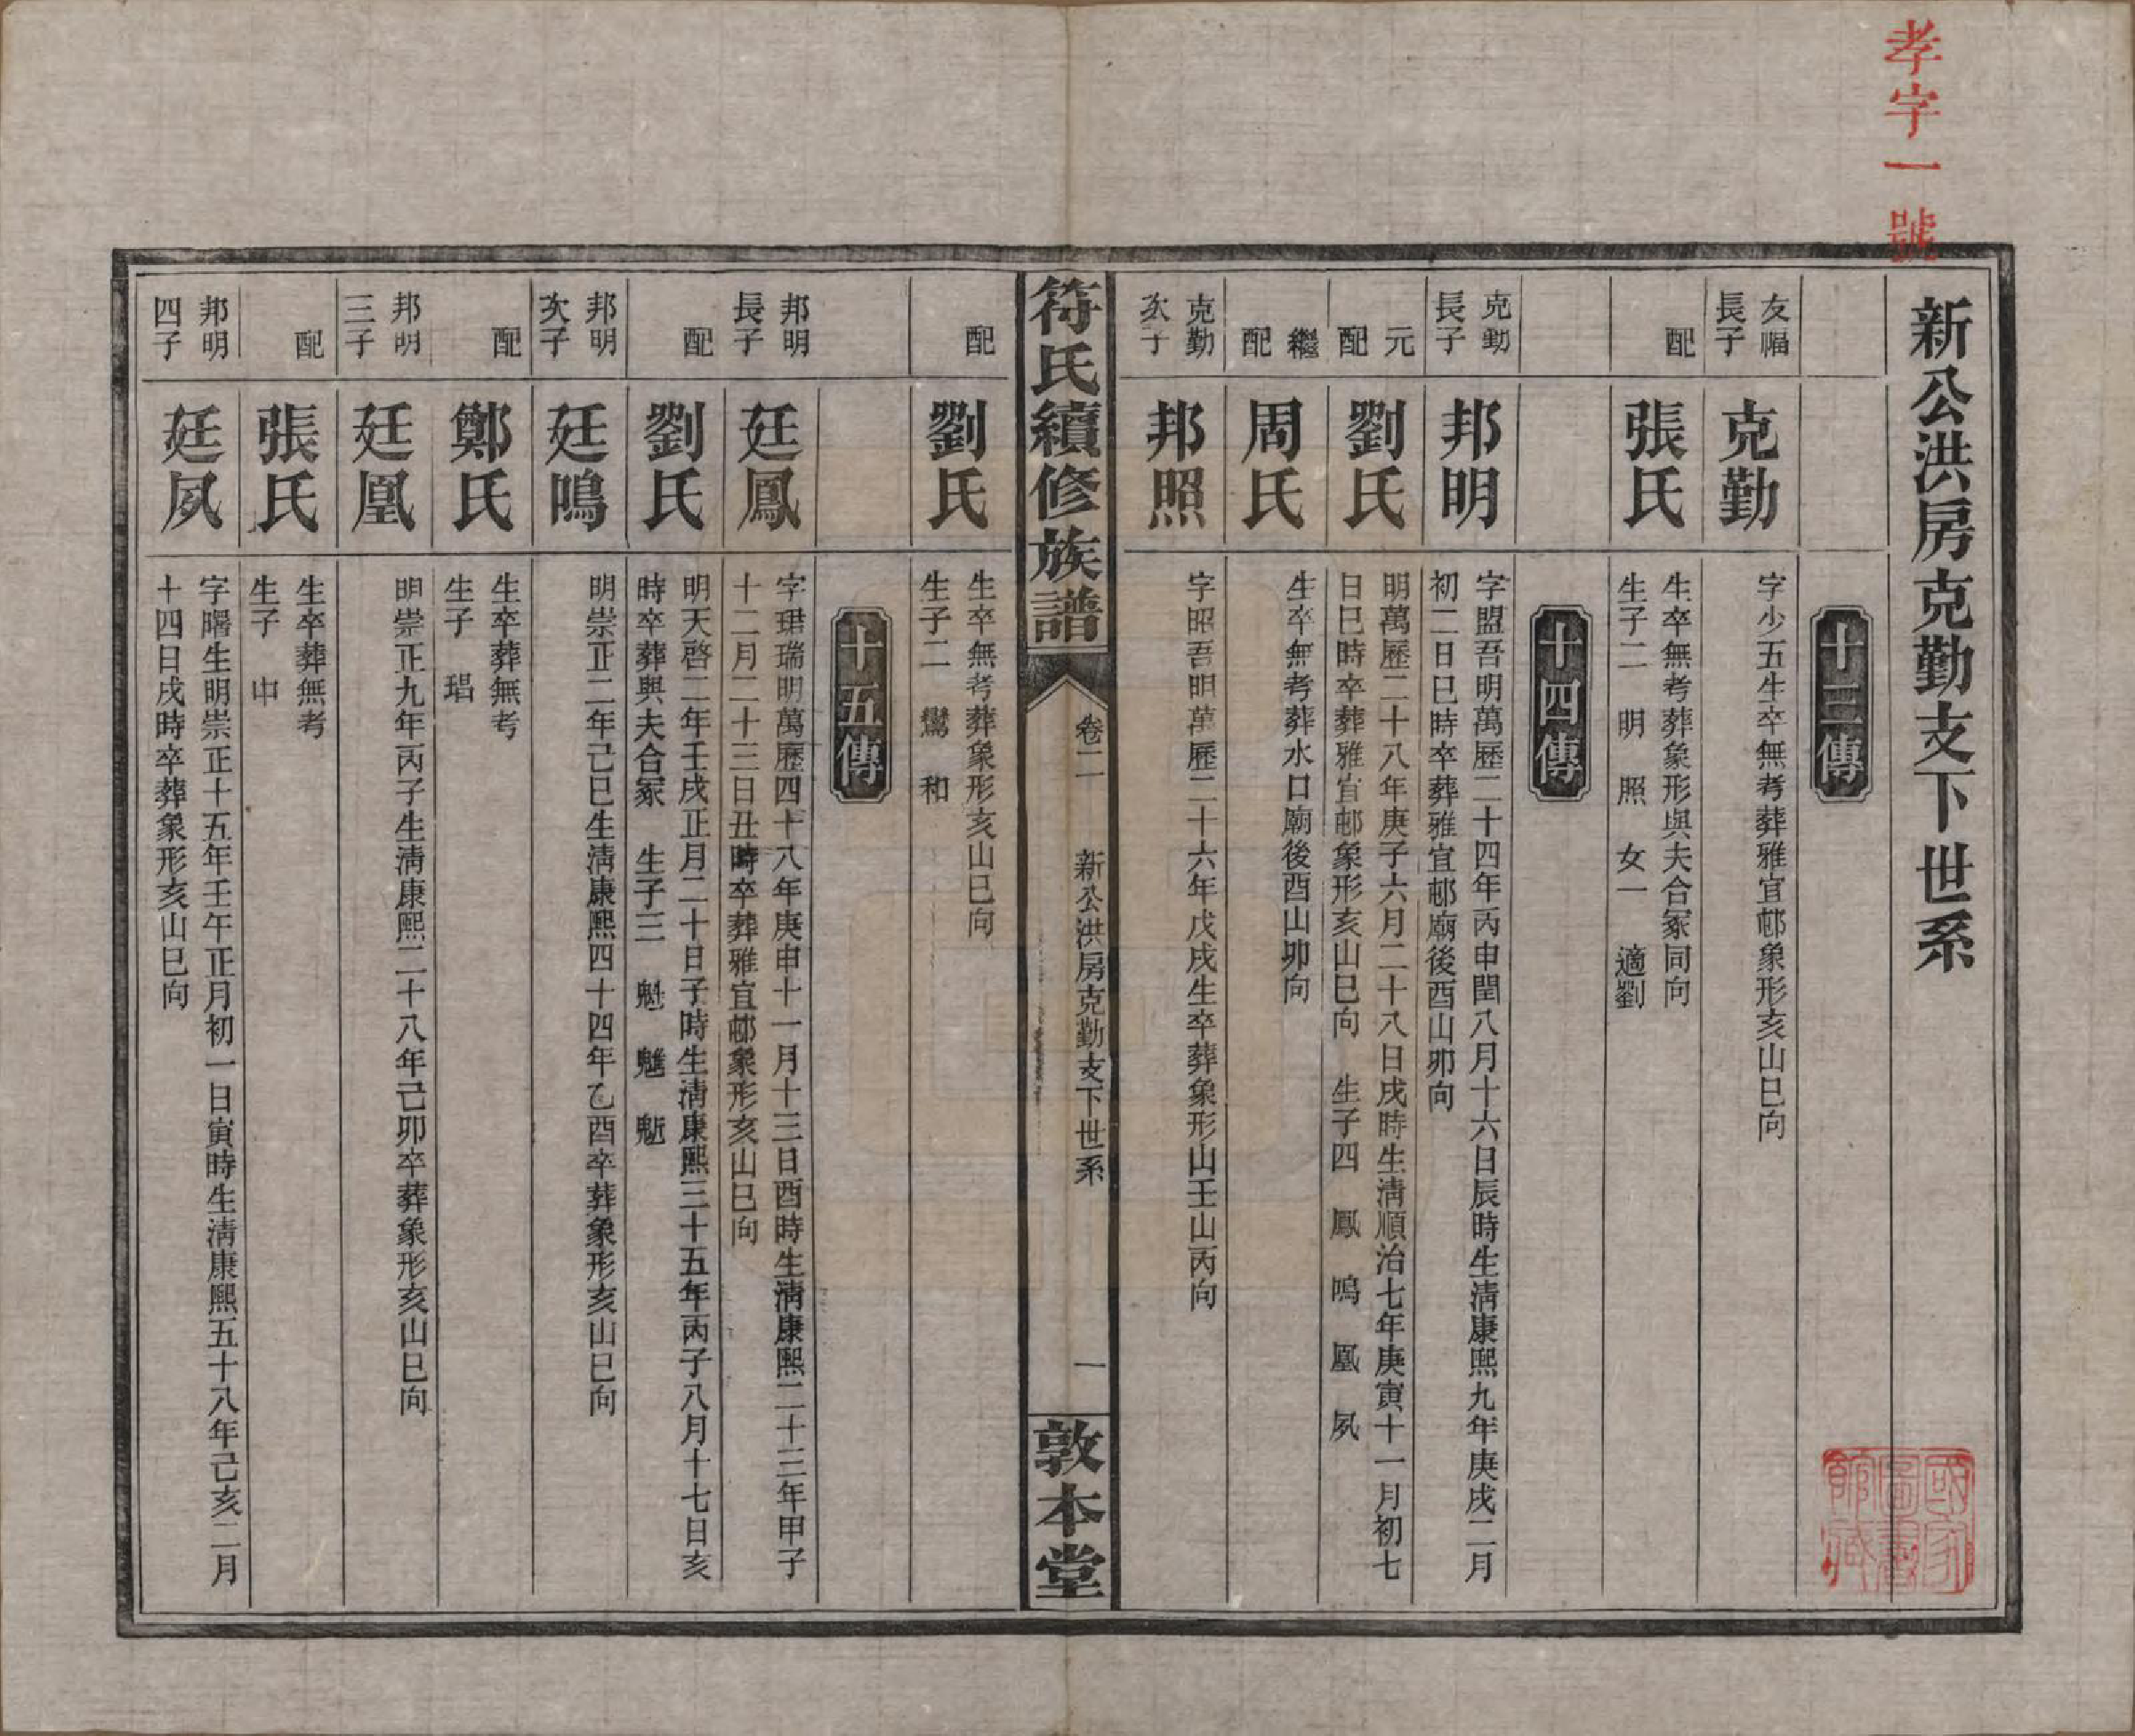 孝字一號
新公洪房克勤支下世系
十三傳
友福
長子
克勤
字少五生卒無考葬雅宜邨象形亥山巳向
配
張氏
生卒無考葬象形與夫合冢同向
生子二　明　照　女一　適劉
十四傳
克勤
長子
邦明
字盟吾明萬歷二十四年丙申閏八月十六日辰時生淸康熙九年庚戌二月
初二日巳時卒葬雅宜邨廟後酉山卯向
元
配
劉氏
明萬歷二十八年庚子六月二十八日戌時生淸順治七年庚寅十一月初七
日巳時卒葬雅宜邨象形亥山巳向　生子四　鳳　鳴　凰　夙
繼
配
周氏
生卒無考葬水口廟後酉山卯向
克勤
次子
邦照
字昭吾明萬歷二十六年戊戌生卒葬象形山壬山丙向
符氏續修族譜
卷二
新公洪房克勤支下世系
一
敦本堂
配
劉氏
生卒無考葬象形亥山巳向
生子二　鸞　和
十五傳
邦明
長子
廷鳳
字珺瑞明萬歷四十八年庚申十一月十三日酉時生淸康熙二十三年甲子
十二月二十三日丑時卒葬雅宜邨象形亥山巳向
配
劉氏
明天啓二年壬戌正月二十日子時生淸康熙三十五年丙子八月十七日亥
時卒葬與夫合冢　生子三　魁
邦明
次子
廷鳴
明崇正二年己巳生淸康熙四十四年乙酉卒葬象形亥山巳向
配
鄭氏
生卒葬無考
生子　琩
邦明
三子
廷凰
明崇正九年丙子生淸康熙二十八年己卯卒葬象形亥山巳向
配
張氏
生卒葬無考
生子　申
邦明
四子
廷夙
字曙生明崇正十五年壬午正月初一日寅時生淸康熙五十八年己亥二月
十四日戌時卒葬象形亥山巳向
國家
圖書
館藏